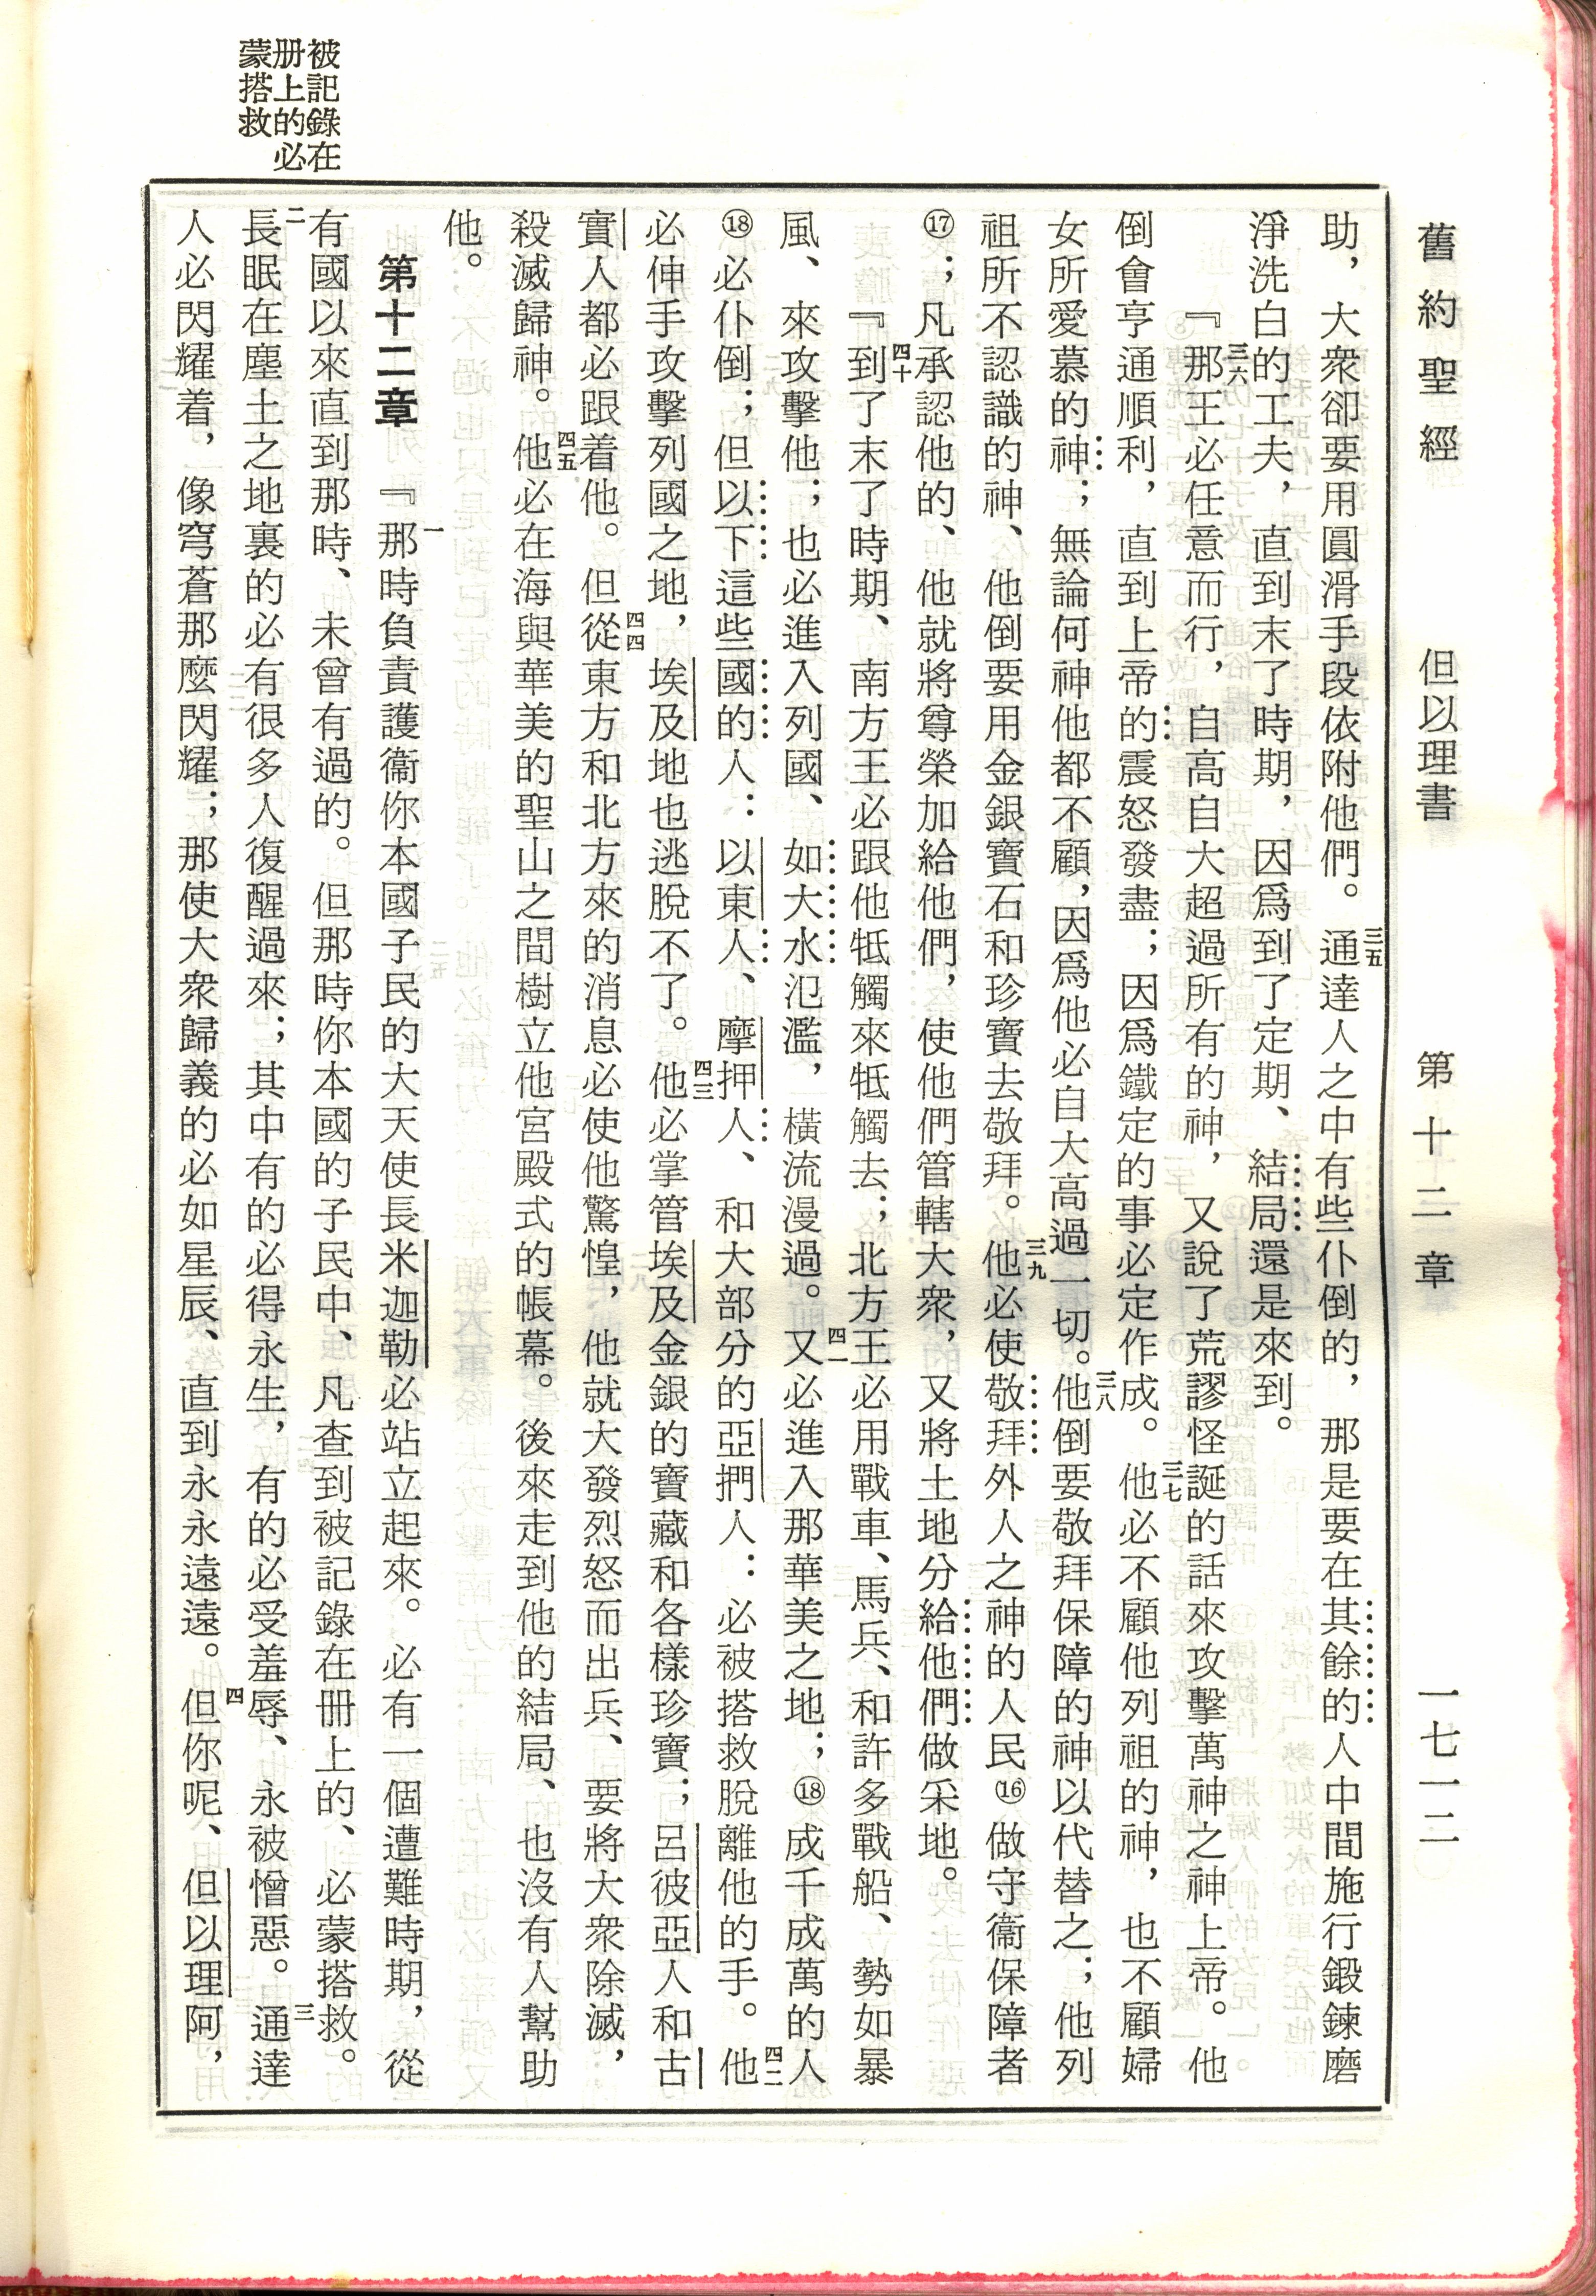 舊約聖經　但以理書　第十二章　一七一二
助，大衆卻要用圓滑手段依附他們。三五通達人之中有些仆倒的，那是要在其餘的人中間施行鍛鍊磨
淨洗白的工夫，直到末了時期，因爲到了定期、結局還是來到。
三六『那王必任意而行，自高自大超過所有的神，又說了荒謬怪誕的話來攻擊萬神之神上帝。他
倒會亨通順利，直到上帝的震怒發盡；因爲鐵定的事必定作成。三七他必不顧他列祖的神，也不顧婦
女所愛慕的神；無論何神他都不顧，因爲他必自大高過一切。三八他倒要敬拜保障的神以代替之；他列
祖所不認識的神、他倒要用金銀寶石和珍寶去敬拜。三九他必使敬拜外人之神的人民⑯做守衞保障者
⑰；凡承認他的、他就將尊榮加給他們，使他們管轄大衆，又將土地分給他們做采地。
四十『到了末了時期、南方王必跟他牴觸來牴觸去；北方王必用戰車、馬兵、和許多戰船、勢如暴
風、來攻擊他；也必進入列國、如大水氾濫，橫流漫過。四一又必進入那華美之地；⑱成千成萬的人
⑱必仆倒；但以下這些國的人：以東人、摩押人、和大部分的亞捫人：必被搭救脫離他的手。四二他
必伸手攻擊列國之地，埃及地也逃脫不了。四三他必掌管埃及金銀的寶藏和各樣珍寶；呂彼亞人和古
實人都必跟着他。四四但從東方和北方來的消息必使他驚惶，他就大發烈怒而出兵、要將大衆除滅，
殺滅歸神。四五他必在海與華美的聖山之間樹立他宮殿式的帳幕。後來走到他的結局、也沒有人幫助
他。
第十二章　一『那時負責護衞你本國子民的大天使長米迦勒必站立起來。必有一個遭難時期，從
有國以來直到那時、未曾有過的。但那時你本國的子民中、凡查到被記錄在冊上的、必蒙搭救。
二長眠在塵土之地裏的必有很多人復醒過來；其中有的必得永生，有的必受羞辱、永被憎惡。三通達
人必閃耀着，像穹蒼那麼閃耀；那使大衆歸義的必如星辰、直到永永遠遠。四但你呢、但以理阿，
被記錄在
册上的必
蒙搭救